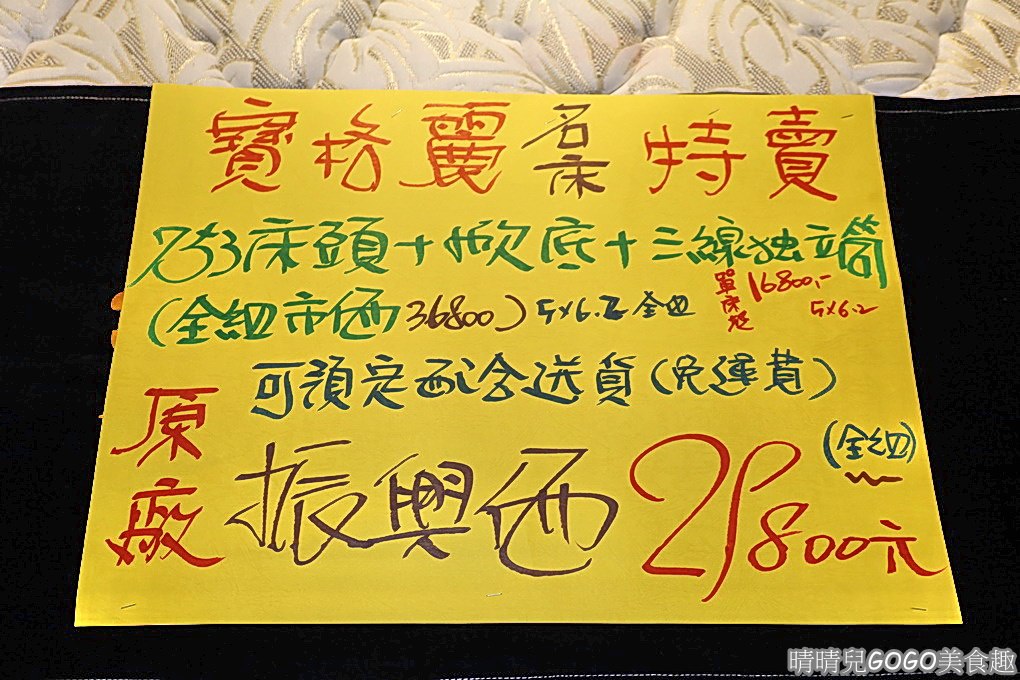 寶格麗名床特賣
753床頭+掀底+三線独立筒
(全組市価36800)5X6.2全組
單床墊16800.- 5X6.2
可預定配合送貨(免運費)
原廠
振興価29800元
(全組)
晴晴兒GOGO美食趣